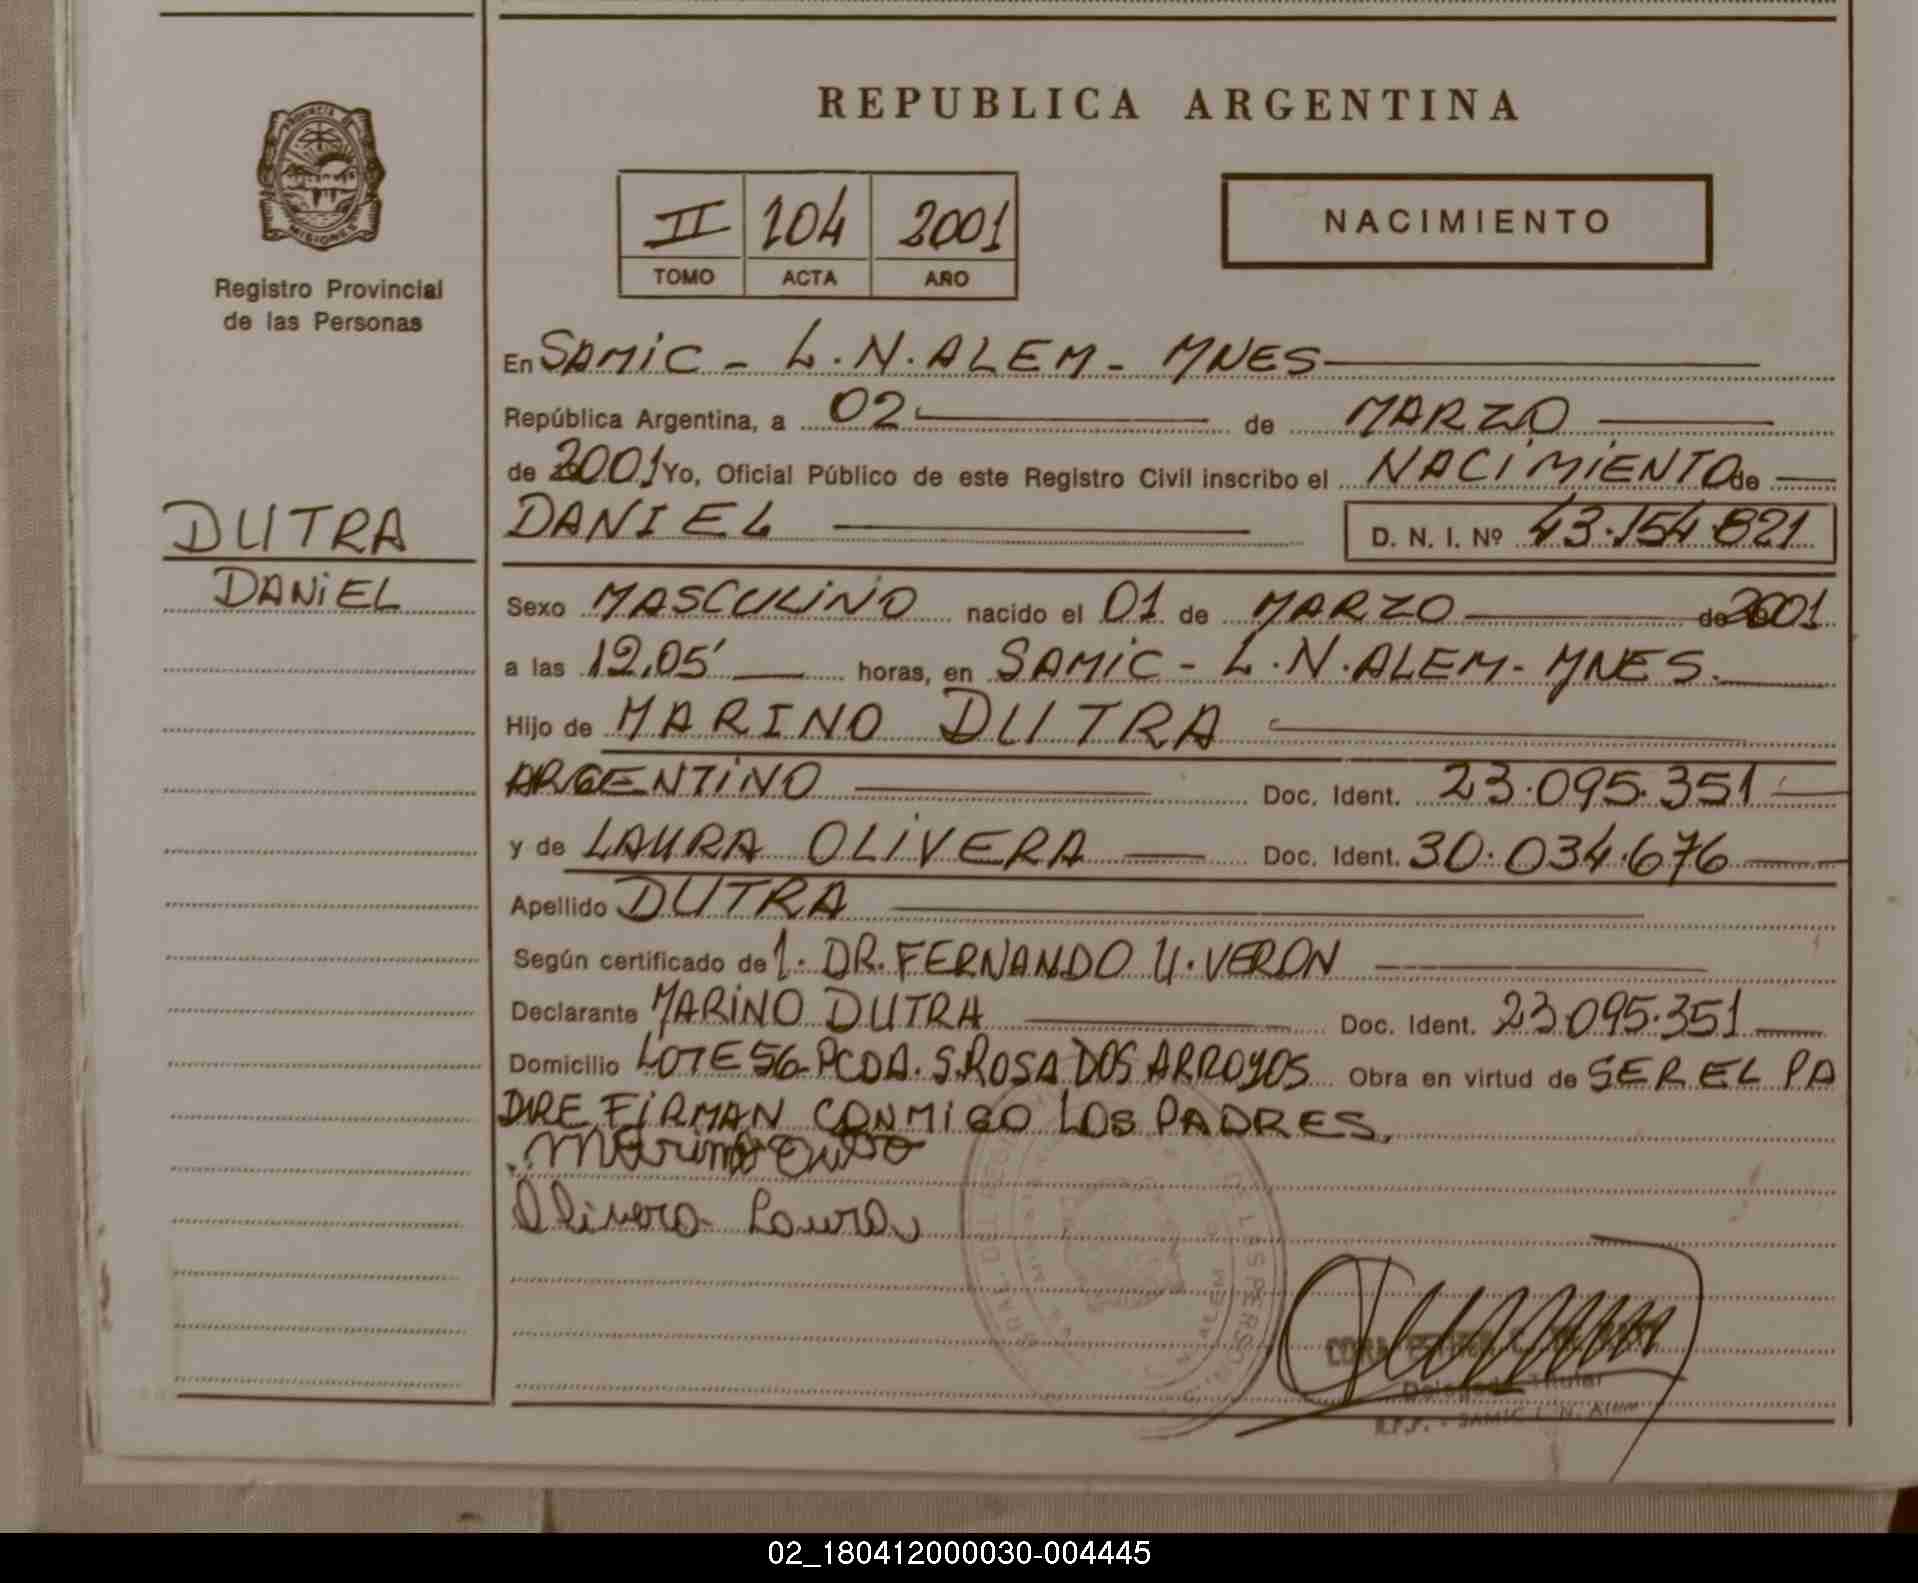 REPUBLICA ARGENTINA
PROVINCIA DE
MISIONES
Registro Provincial
de las Personas
II 104 2001
TOMO ACTA AÑO
NACIMIENTO
En SAMIC - L.N.ALEM - MNES
República Argentina, a 02 de MARZO
de 2001 Yo, Oficial Público de este Registro Civil inscribo el NACIMIENTO de
DANIEL D. N. I. Nº 43.154.821
DUTRA
DANIEL
Sexo MASCULINO nacido el 01 de MARZO de 2001
a las 12,05' horas, en SAMIC - L.N.ALEM - MNES.
Hijo de MARINO DUTRA
ARGENTINO Doc. Ident. 23.095.351
y de LAURA OLIVERA Doc. Ident. 30.034.676
Apellido DUTRA
Según certificado de 1. DR. FERNANDO U. VERON
Declarante MARINO DUTRA Doc. Ident. 23.095.351
Domicilio LOTE 56-PCDA. S.ROSA DOS ARROYOS Obra en virtud de SER EL PA
DRE FIRMAN CONMIGO LOS PADRES.
Marino Dutra
Olivera Laura
Delegada Titular
R.P.P. - SAMIC L. N. Alem
02_180412000030-004445